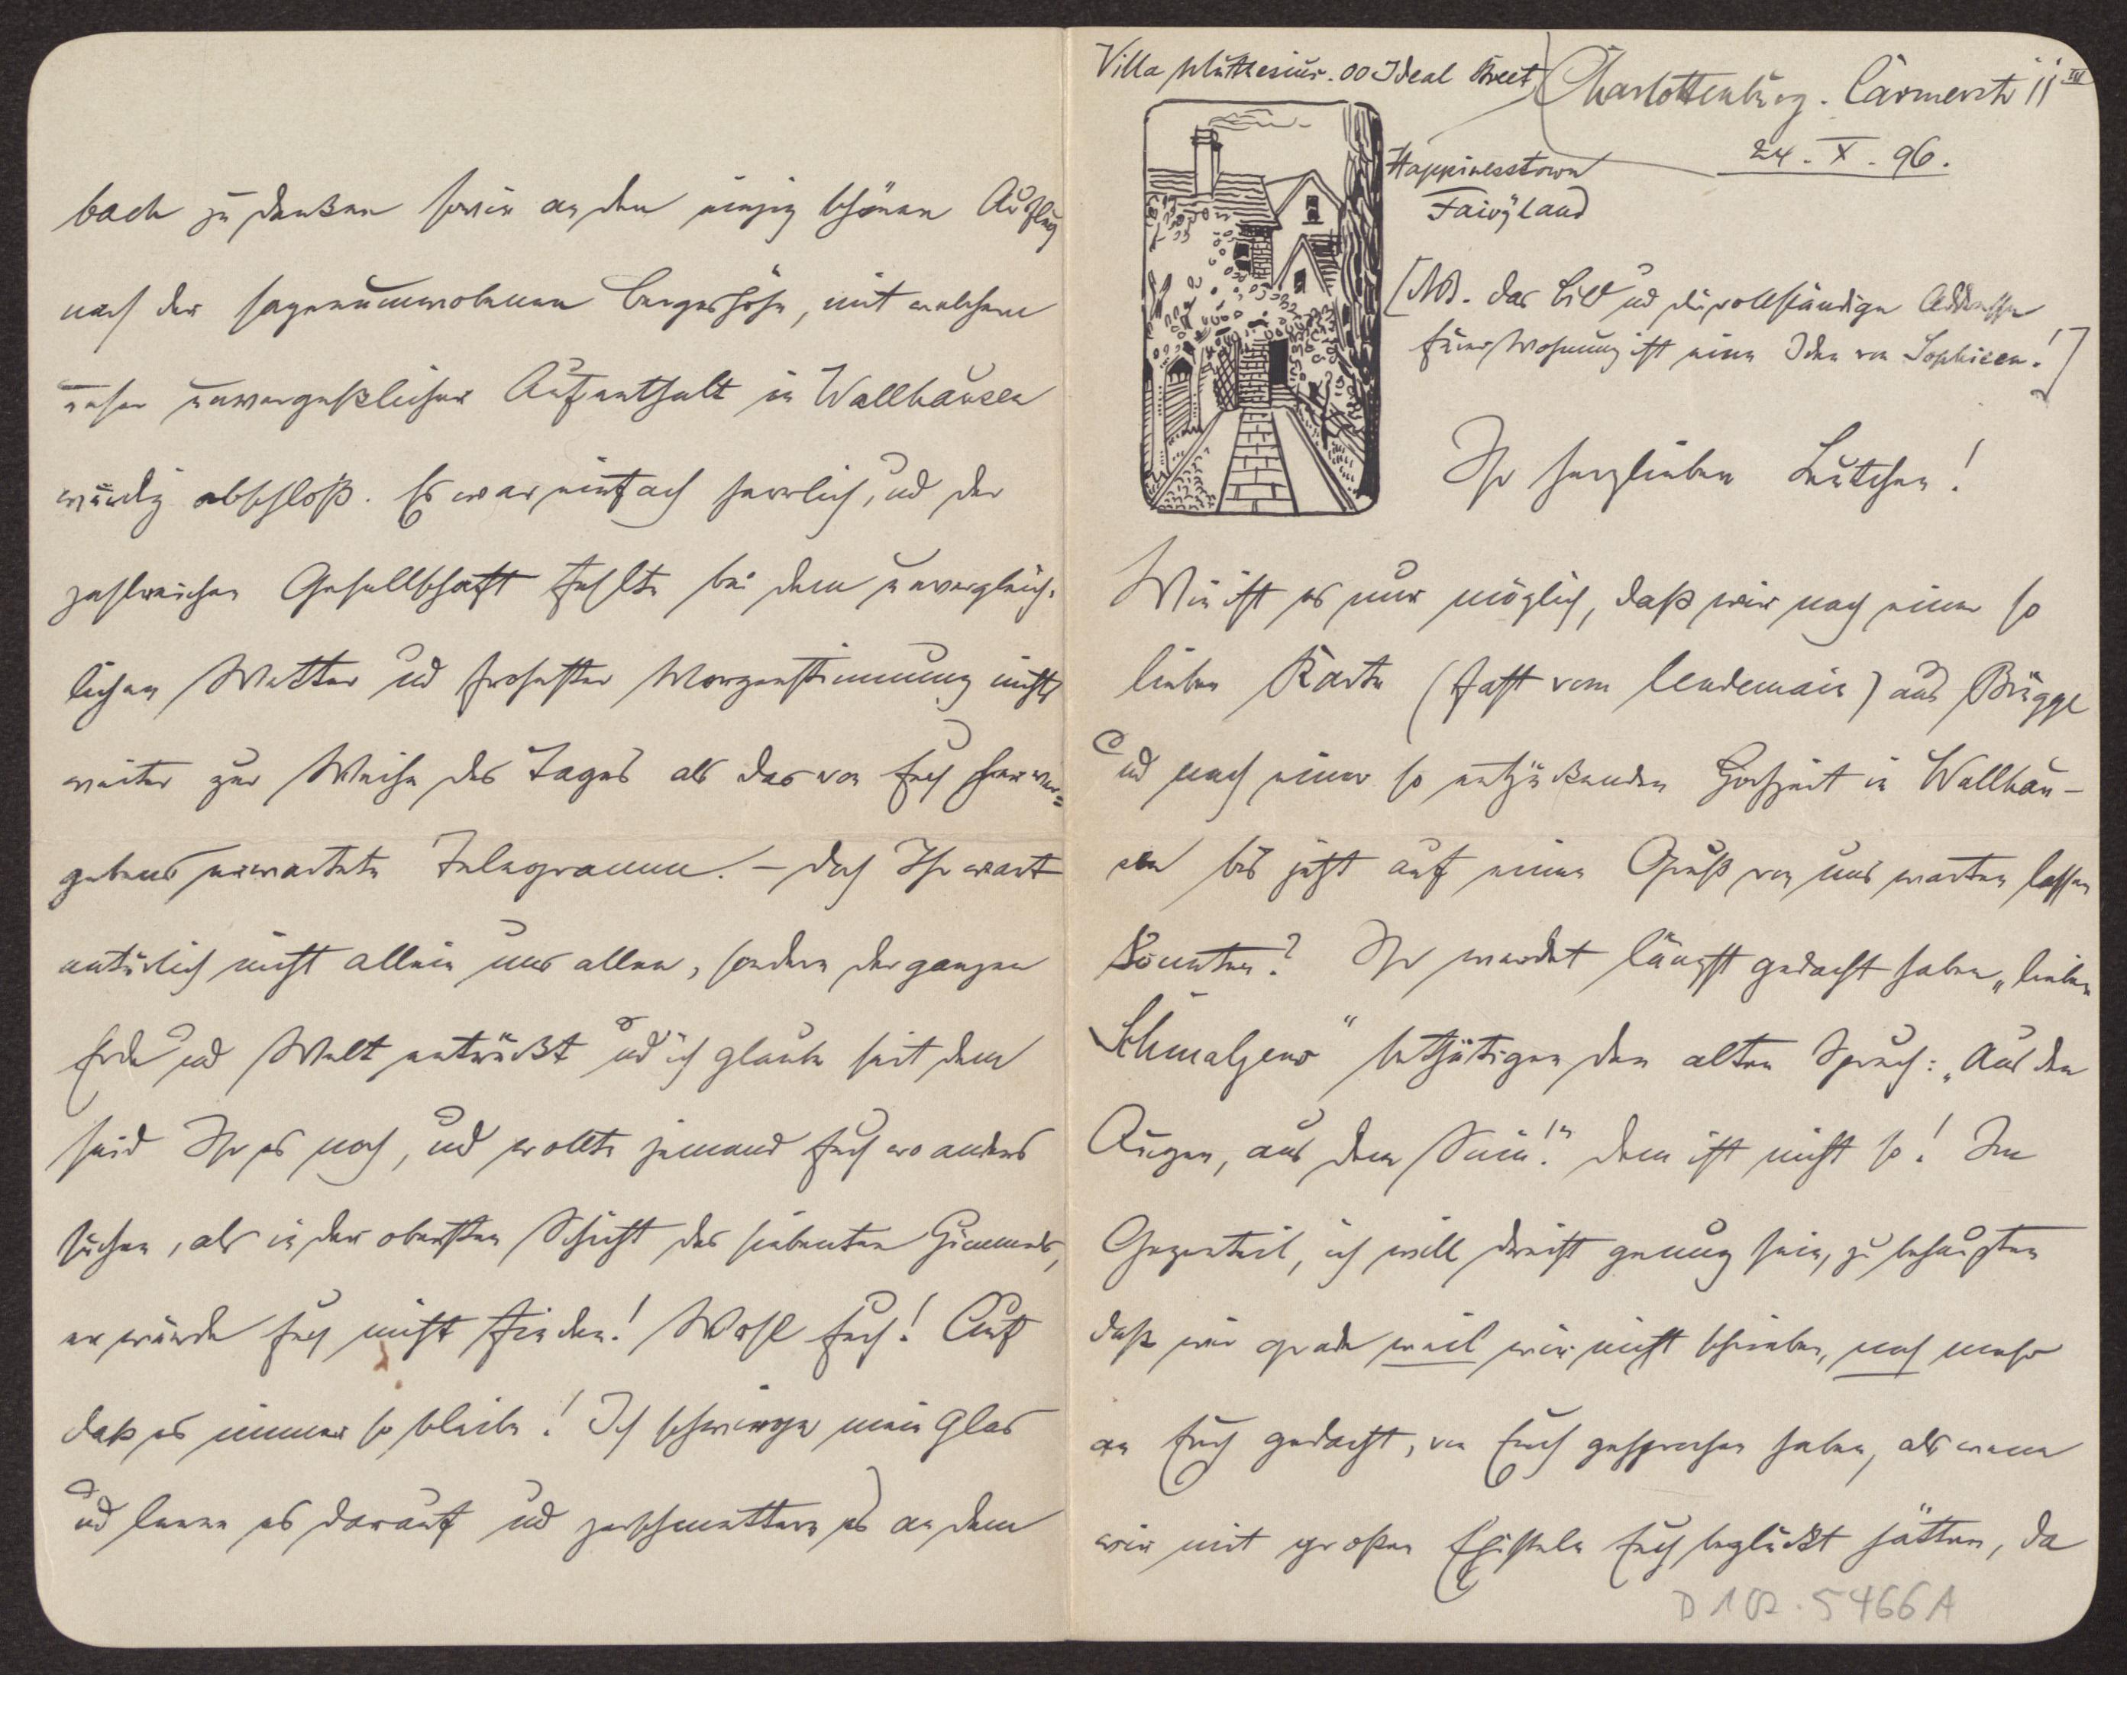 Villa Muthesius. 00 Ideal Street
Happinesstown
Fairyland
Charlottenburg. Carmerstr 11 IV
24. X. 96.
[NB. das Bild und die vollständige Addresse
Eurer Wohnung ist eine Idee von Sophieen!]
Ihr herzlieben Leutchen!
Wie ist es nur möglich, daß wir nach einer so
lieben Karte (fast vom lendemain) aus Brügge
und nach einer so entzückenden Hochzeit in Wallhau-
sen bis jetzt auf einen Gruß von uns warten lassen
konnten? Ihr werdet längst gedacht haben, „lieben
Schmalzens" bethätigen den alten Spruch: „Aus den
Augen, aus dem Sinn!" Dem ist nicht so! Im
Gegenteil, ich will dreist genug sein, zu behaupten
daß wir grade weil wir nicht schrieben, noch mehr
an Euch gedacht, von Euch gesprochen haben, als wenn
wir mit großen Episteln Euch beglückt hätten, da
bach zu denken sowie an den einzig schönen Ausflug
nach der sagenumwobenen Bergeshöhe, mit welchem
unser unvergeßlicher Aufenthalt in Wallhausen
würdig abschloß. Es war einfach herrlich, und der
zahlreichen Gesellschaft fehlte bei dem unvergleich-
lichen Wetter und frohester Morgenstimmung nichts
weiter zur Weihe des Tages als das von Euch ver-
gebens erwartete Telegramm. – Doch Ihr wart
natürlich nicht allein uns allen, sondern der ganzen
Erde und Welt entrückt und ich glaube seit dem
seid Ihr es noch, und wollte jemand Euch wo anders
suchen, als in der obersten Schicht des siebenten Himmels,
er würde Euch nicht finden! Wohl Euch! Auf
daß es immer so bleibe! Ich schwinge mein Glas
und leere es darauf und zerschmettere es) an dem
D 102. 5466 A